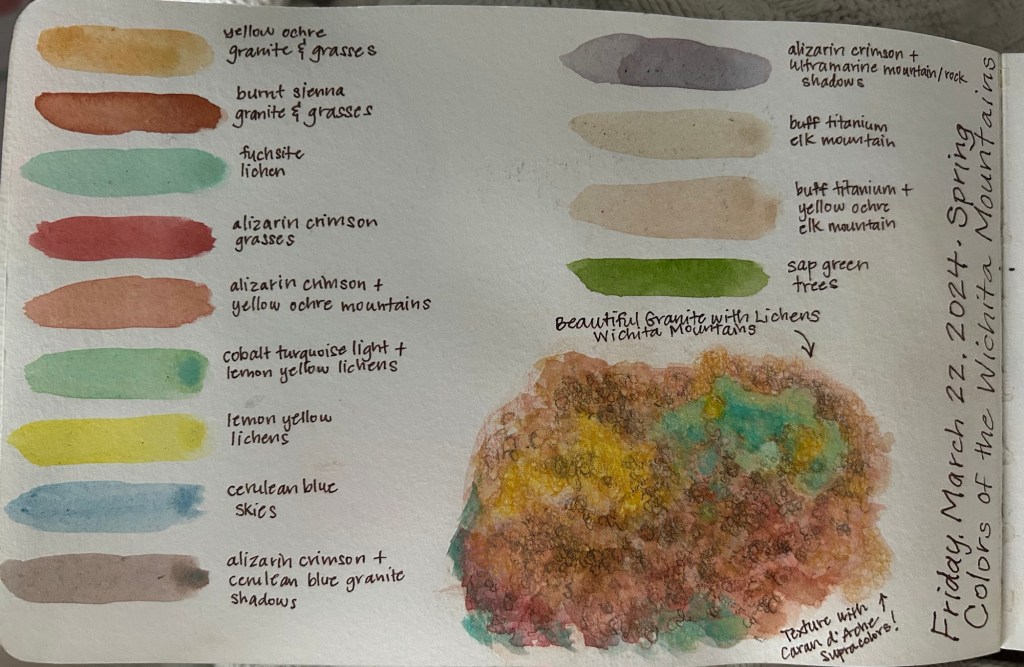 yellow ochre
granite & grasses
burnt sienna
granite & grasses
fuchsite
lichen
alizarin crimson
grasses
alizarin crimson +
yellow ochre mountains
cobalt turquoise light +
lemon yellow lichens
lemon yellow
lichens
cerulean blue
skies
alizarin crimson +
cerulean blue granite
shadows
alizarin crimson +
ultramarine mountain/rock
shadows
buff titanium
elk mountain
buff titanium +
yellow ochre
elk mountain
sap green
trees
Beautiful Granite with Lichens
Wichita Mountains
Texture with
Caran d'Ache
Supracolors!
Friday. March 22. 2024. Spring
Colors of the Wichita Mountains